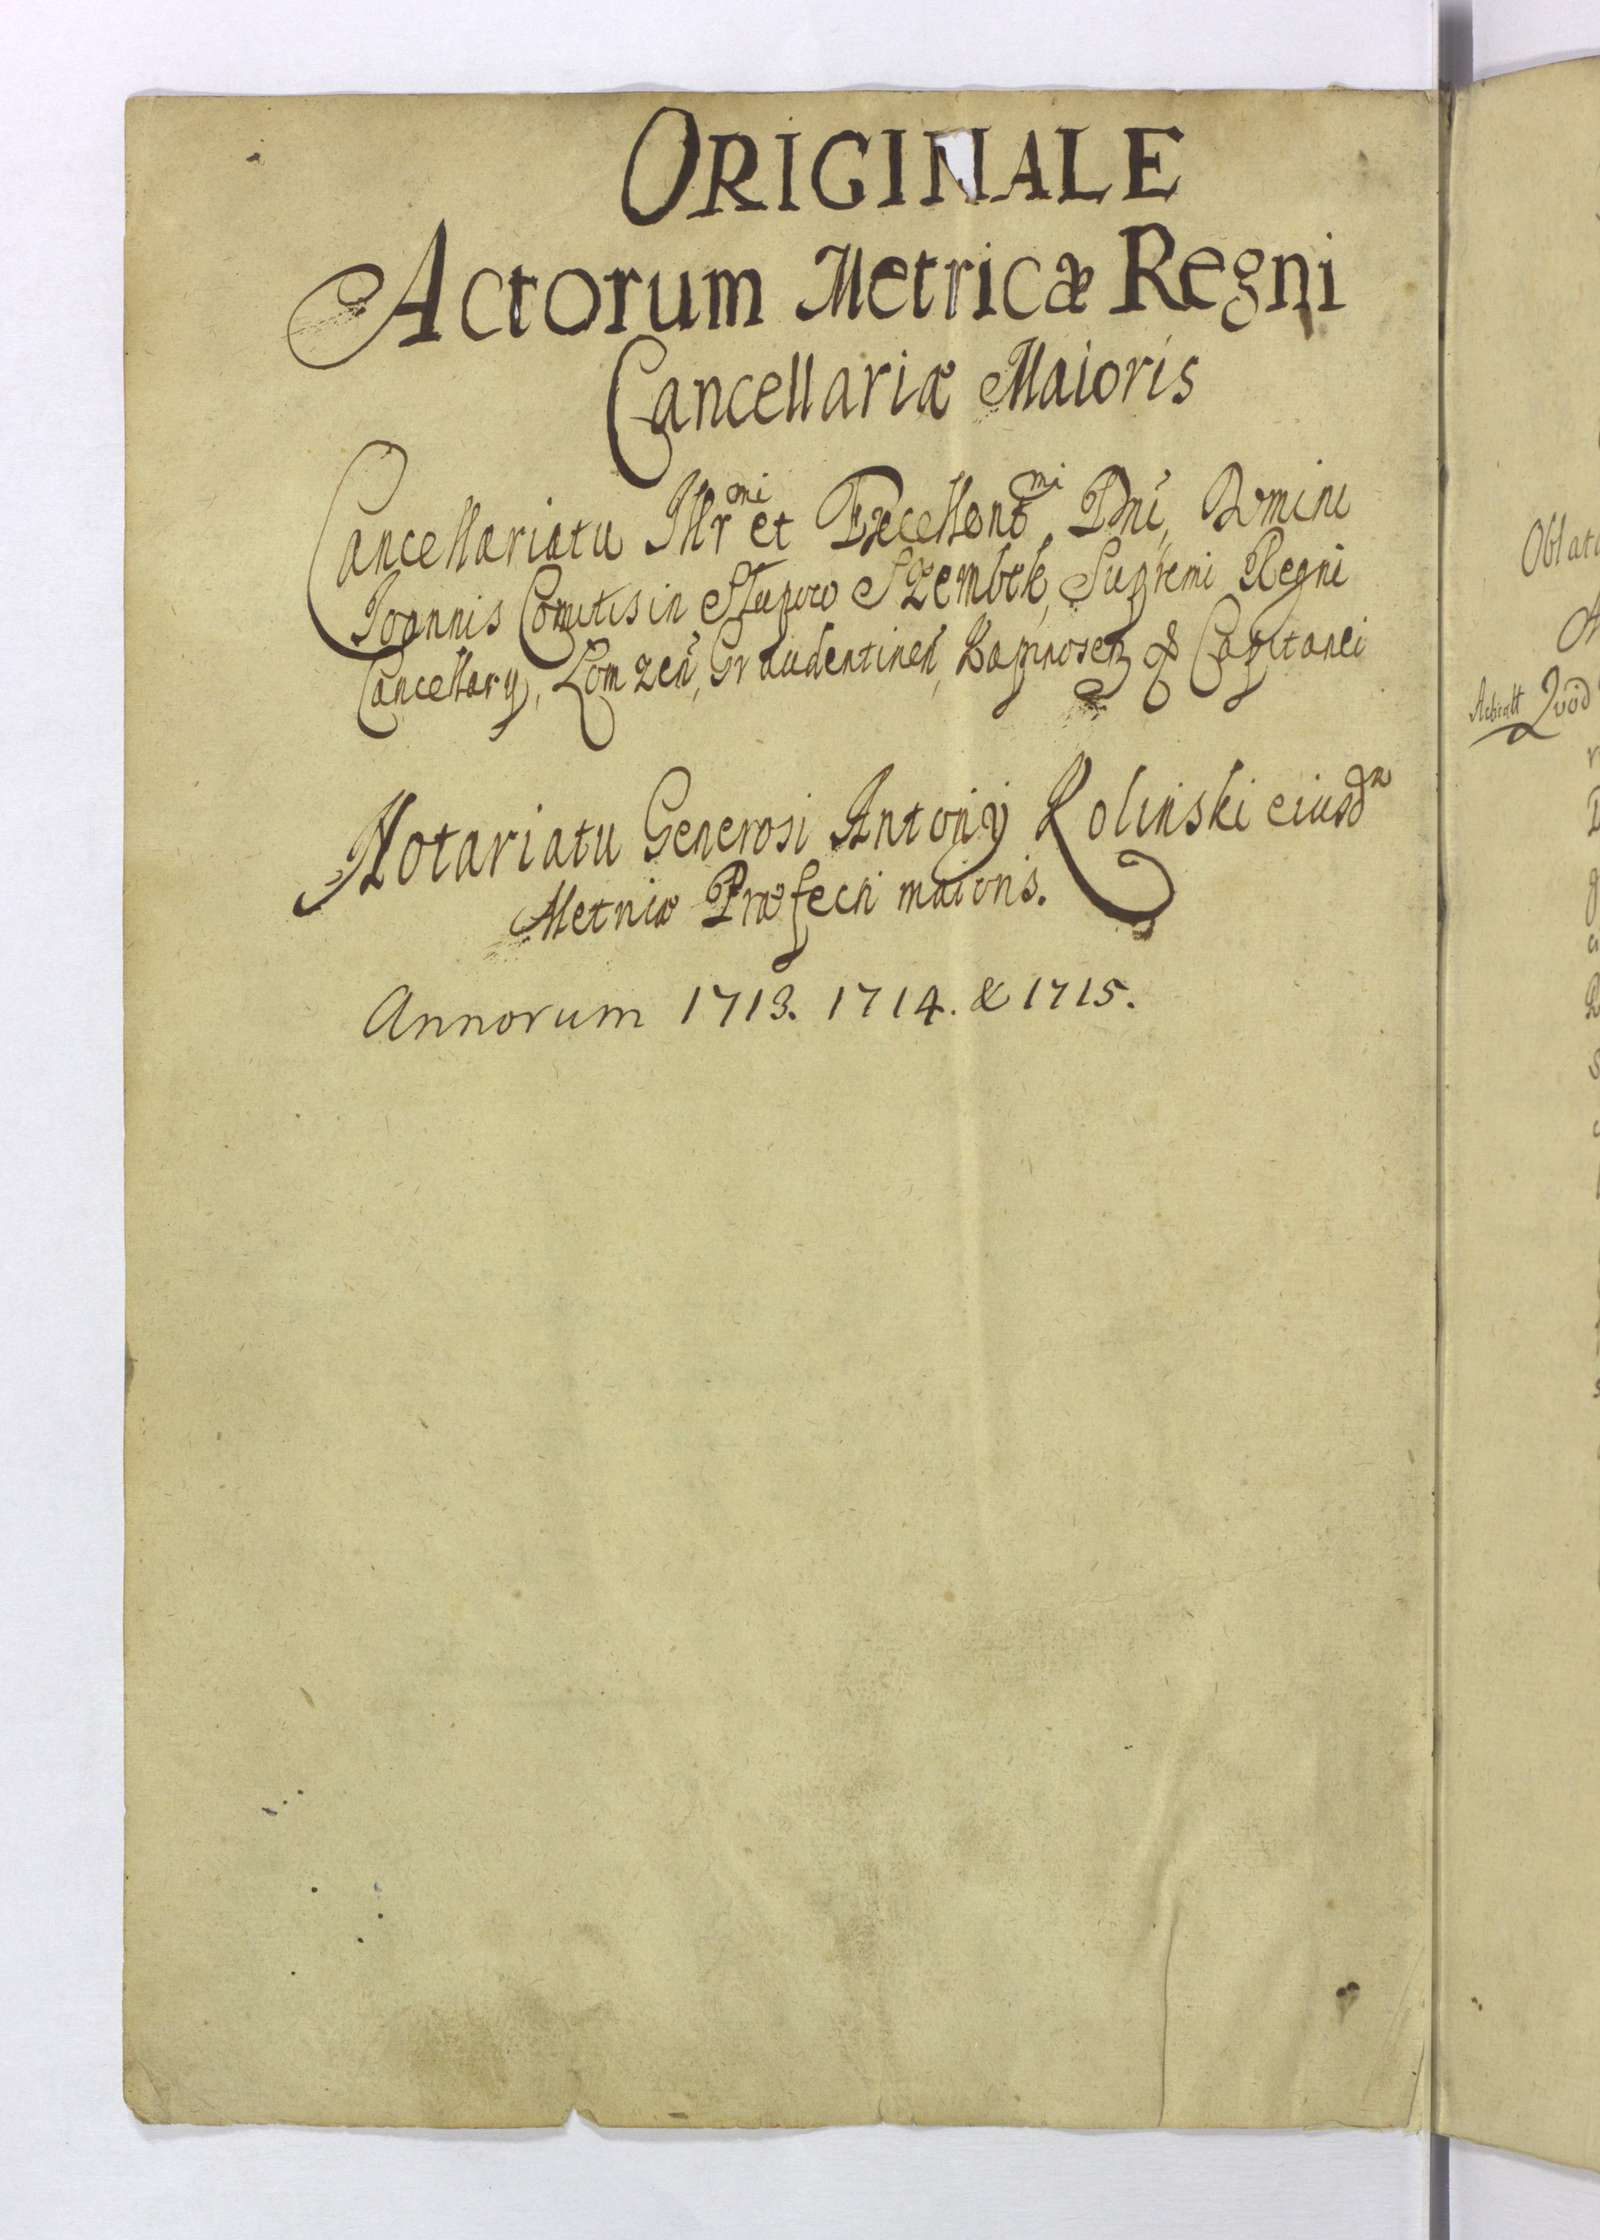 ORIGINALE
Actorum Metricæ Regni
Cancellariæ Maioris
Cancellariatu Illr̄mi et Excellent̄mi Dn̄i, Domini
Joannis Comitis in Słupow Szembek, Supremi Regni
Cancellarÿ, Lomzen̄, Graudentinen̄, & Capitanei
Notariatu Generosi Antonÿ Rolinski eiusdm
Metricæ Præfecti maioris.
Annorum 1713. 1714. & 1715.
Quod